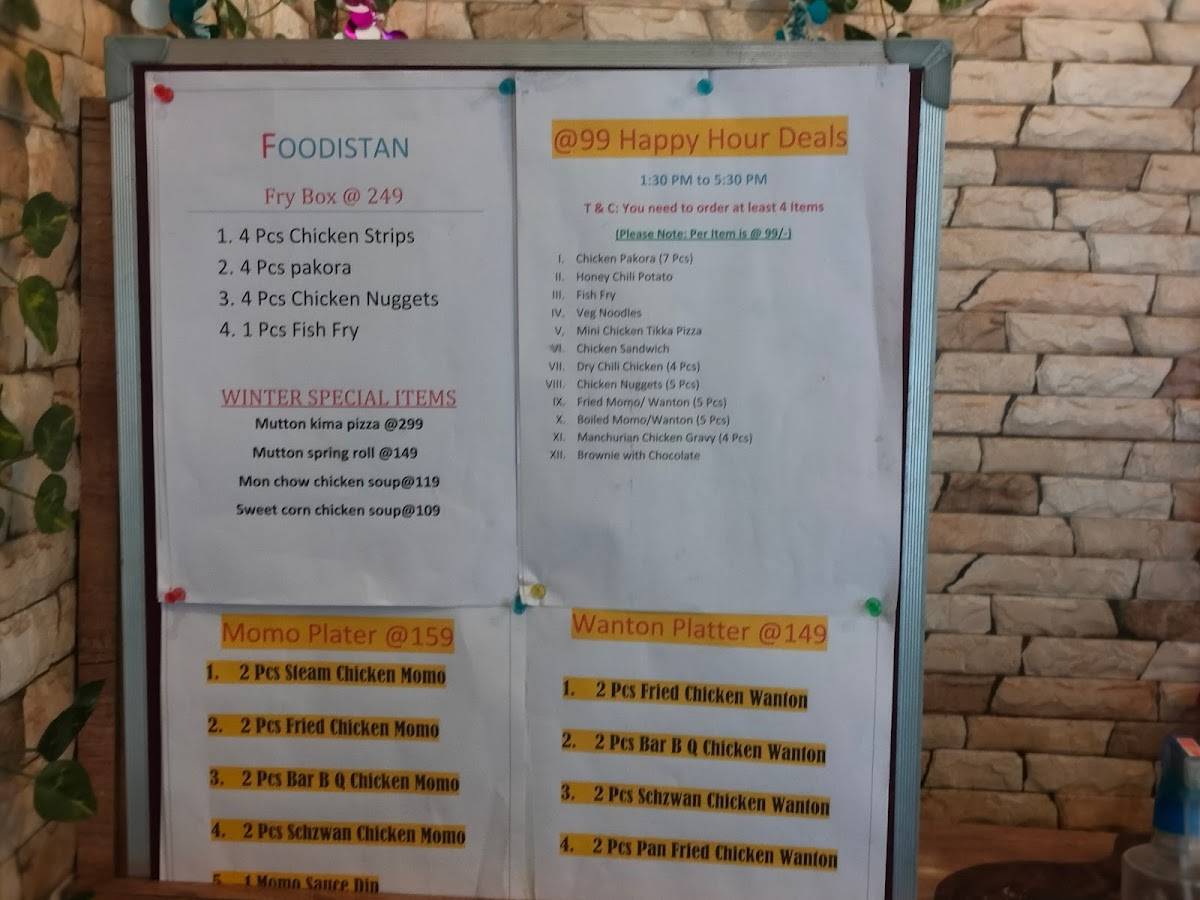 FOODISTAN
Fry Box @ 249
1. 4 Pcs Chicken Strips
2. 4 Pcs pakora
3. 4 Pcs Chicken Nuggets
4. 1 Pcs Fish Fry
WINTER SPECIAL ITEMS
Mutton kima pizza @299
Mutton spring roll @149
Mon chow chicken soup@119
Sweet corn chicken soup@109
@99 Happy Hour Deals
1:30 PM to 5:30 PM
T & C: You need to order at least 4 Items
(Please Note: Per Item is @ 99/-)
I. Chicken Pakora (7 Pcs)
II. Honey Chili Potato
III. Fish Fry
IV. Veg Noodles
V. Mini Chicken Tikka Pizza
VI. Chicken Sandwich
VII. Dry Chili Chicken (4 Pcs)
VIII. Chicken Nuggets (5 Pcs)
IX. Fried Momo/ Wanton (5 Pcs)
X. Boiled Momo/Wanton (5 Pcs)
XI. Manchurian Chicken Gravy (4 Pcs)
XII. Brownie with Chocolate
Momo Plater @159
1. 2 Pcs Steam Chicken Momo
2. 2 Pcs Fried Chicken Momo
3. 2 Pcs Bar B Q Chicken Momo
4. 2 Pcs Schzwan Chicken Momo
5. 1 Momo Sauce Dip
Wanton Platter @149
1. 2 Pcs Fried Chicken Wanton
2. 2 Pcs Bar B Q Chicken Wanton
3. 2 Pcs Schzwan Chicken Wanton
4. 2 Pcs Pan Fried Chicken Wanton